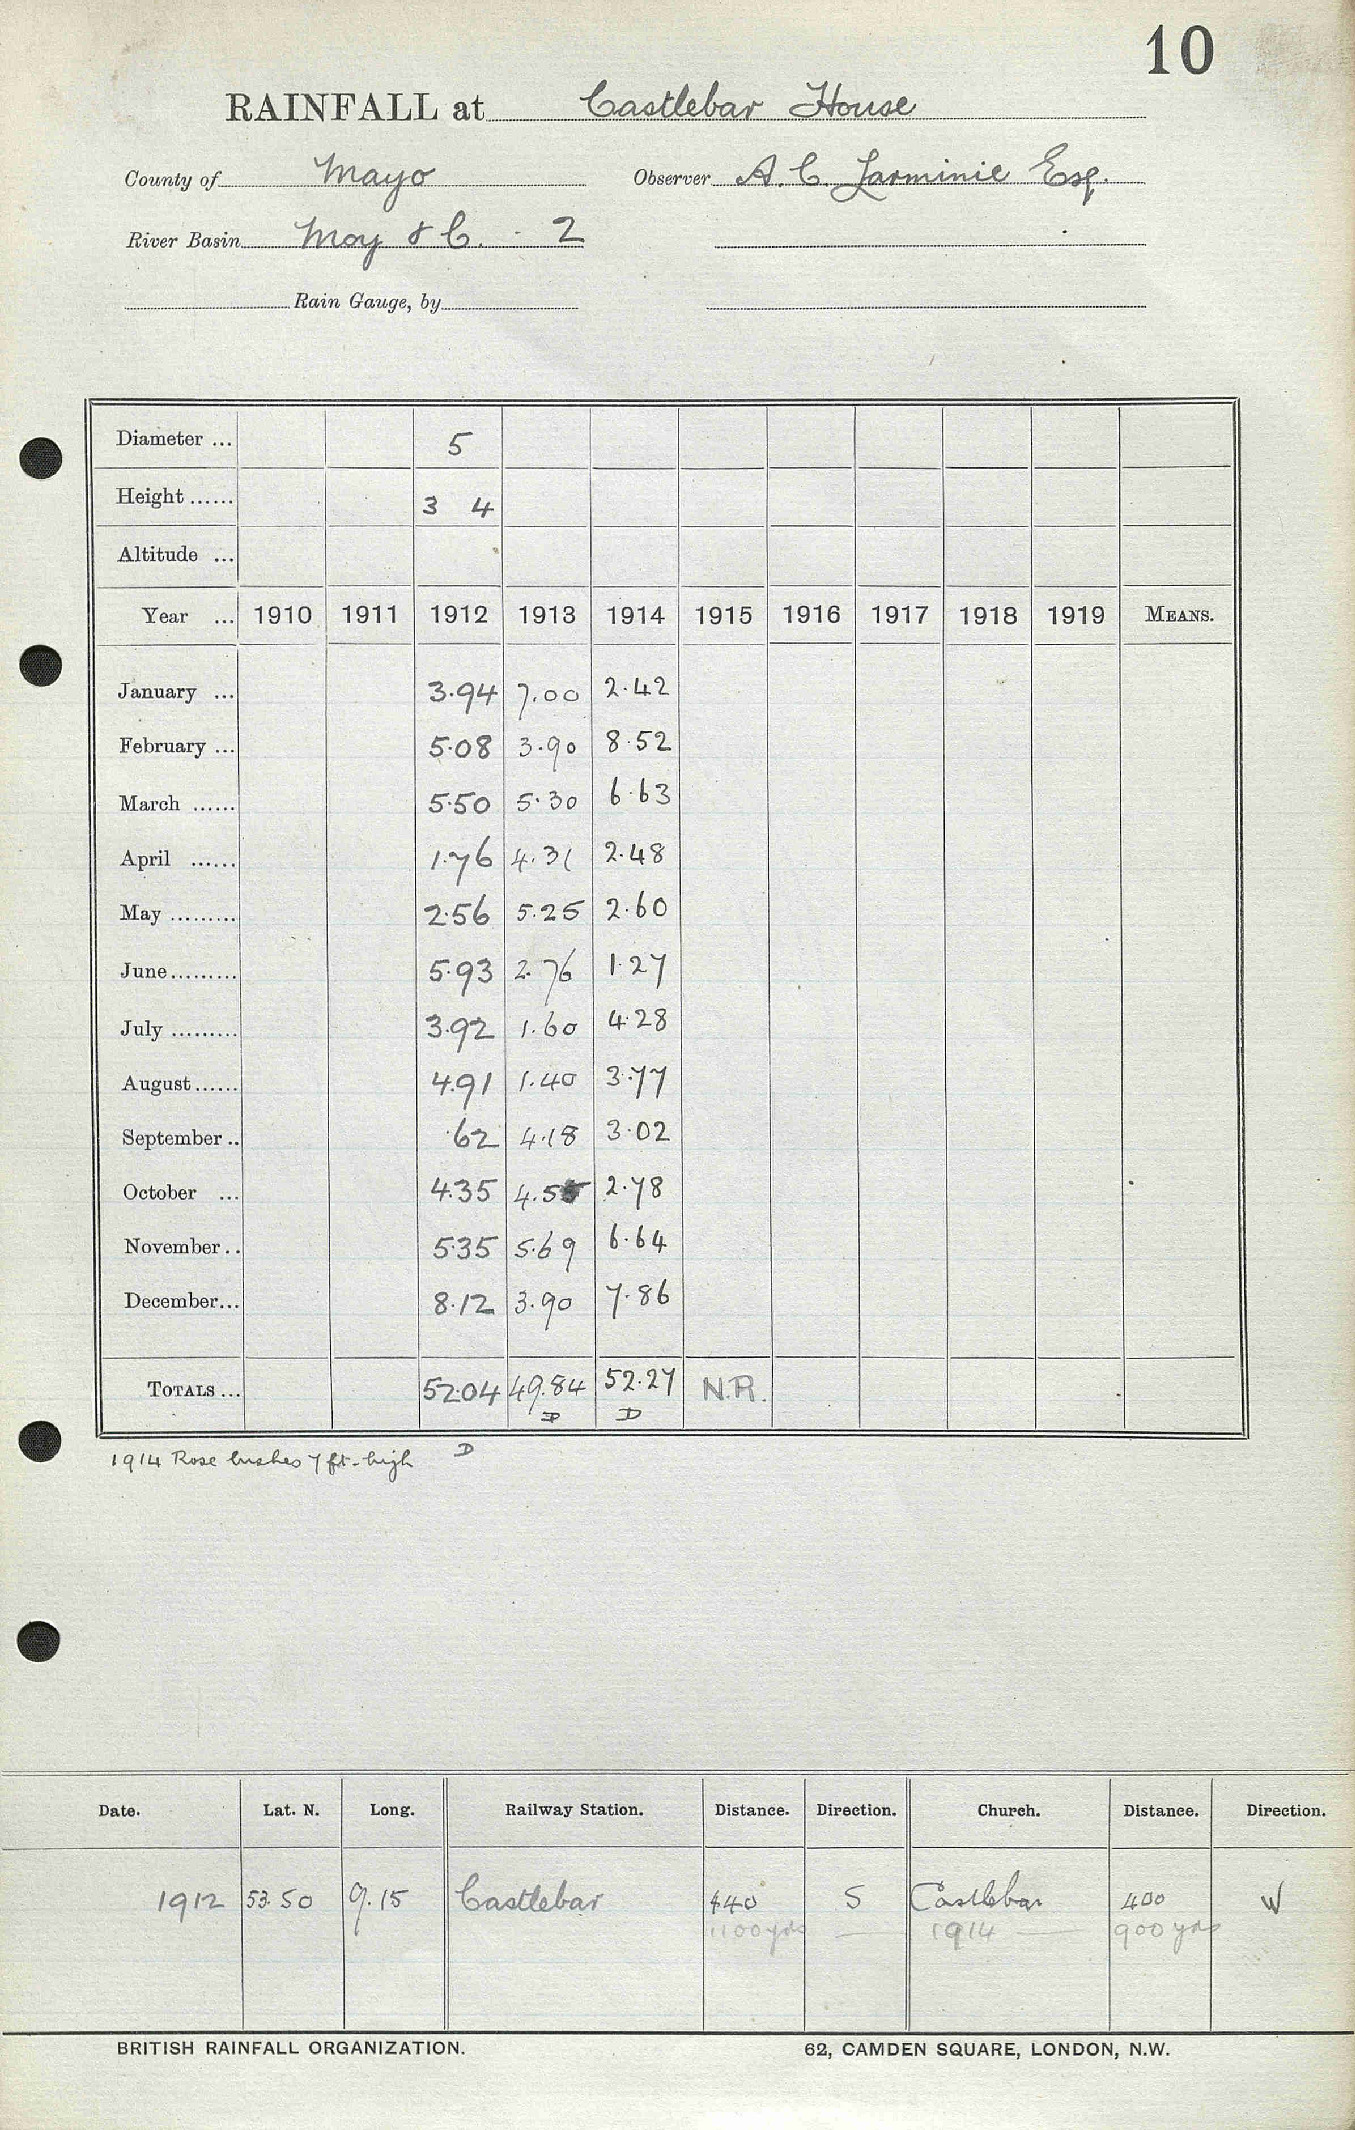 10
RAINFALL at Castlebar House
County of Mayo Observer A. C. Larminie Esq.
River Basin Moy & C. - 2
Rain Gauge, by
Diameter ... 5
Height ...... 3 4
Altitude ...
Year ... 1910 1911 1912 1913 1914 1915 1916 1917 1918 1919 MEANS.
January ... 3.94 7.00 2.42
February ... 5.08 3.90 8.52
March ...... 5.50 5.30 6.63
April ...... 1.76 4.31 2.48
May ......... 2.56 5.25 2.60
June......... 5.93 2.76 1.27
July ......... 3.92 1.60 4.28
August...... 4.91 1.40 3.77
September .. .62 4.18 3.02
October ... 4.35 4.55 2.78
November .. 5.35 5.69 6.64
December... 8.12 3.90 7.86
TOTALS ... 52.04 49.84 52.27 N.R.
D D
1914 Rose bushes 7 ft. high D
Date. Lat. N. Long. Railway Station. Distance. Direction. Church. Distance. Direction.
1912 53.50 9.15 Castlebar 440 S Castlebar 400 W
1100 yds — 1914 — 900 yds
BRITISH RAINFALL ORGANIZATION. 62, CAMDEN SQUARE, LONDON, N.W.